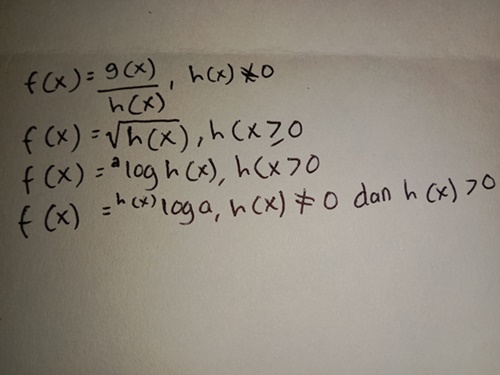 f(x) = g(x)/h(x), h(x) ≠ 0
f(x) = √h(x), h(x ≥ 0
f(x) = ᵃlog h(x), h(x > 0
f(x) = ʰ⁽ˣ⁾log a, h(x) ≠ 0 dan h(x) > 0